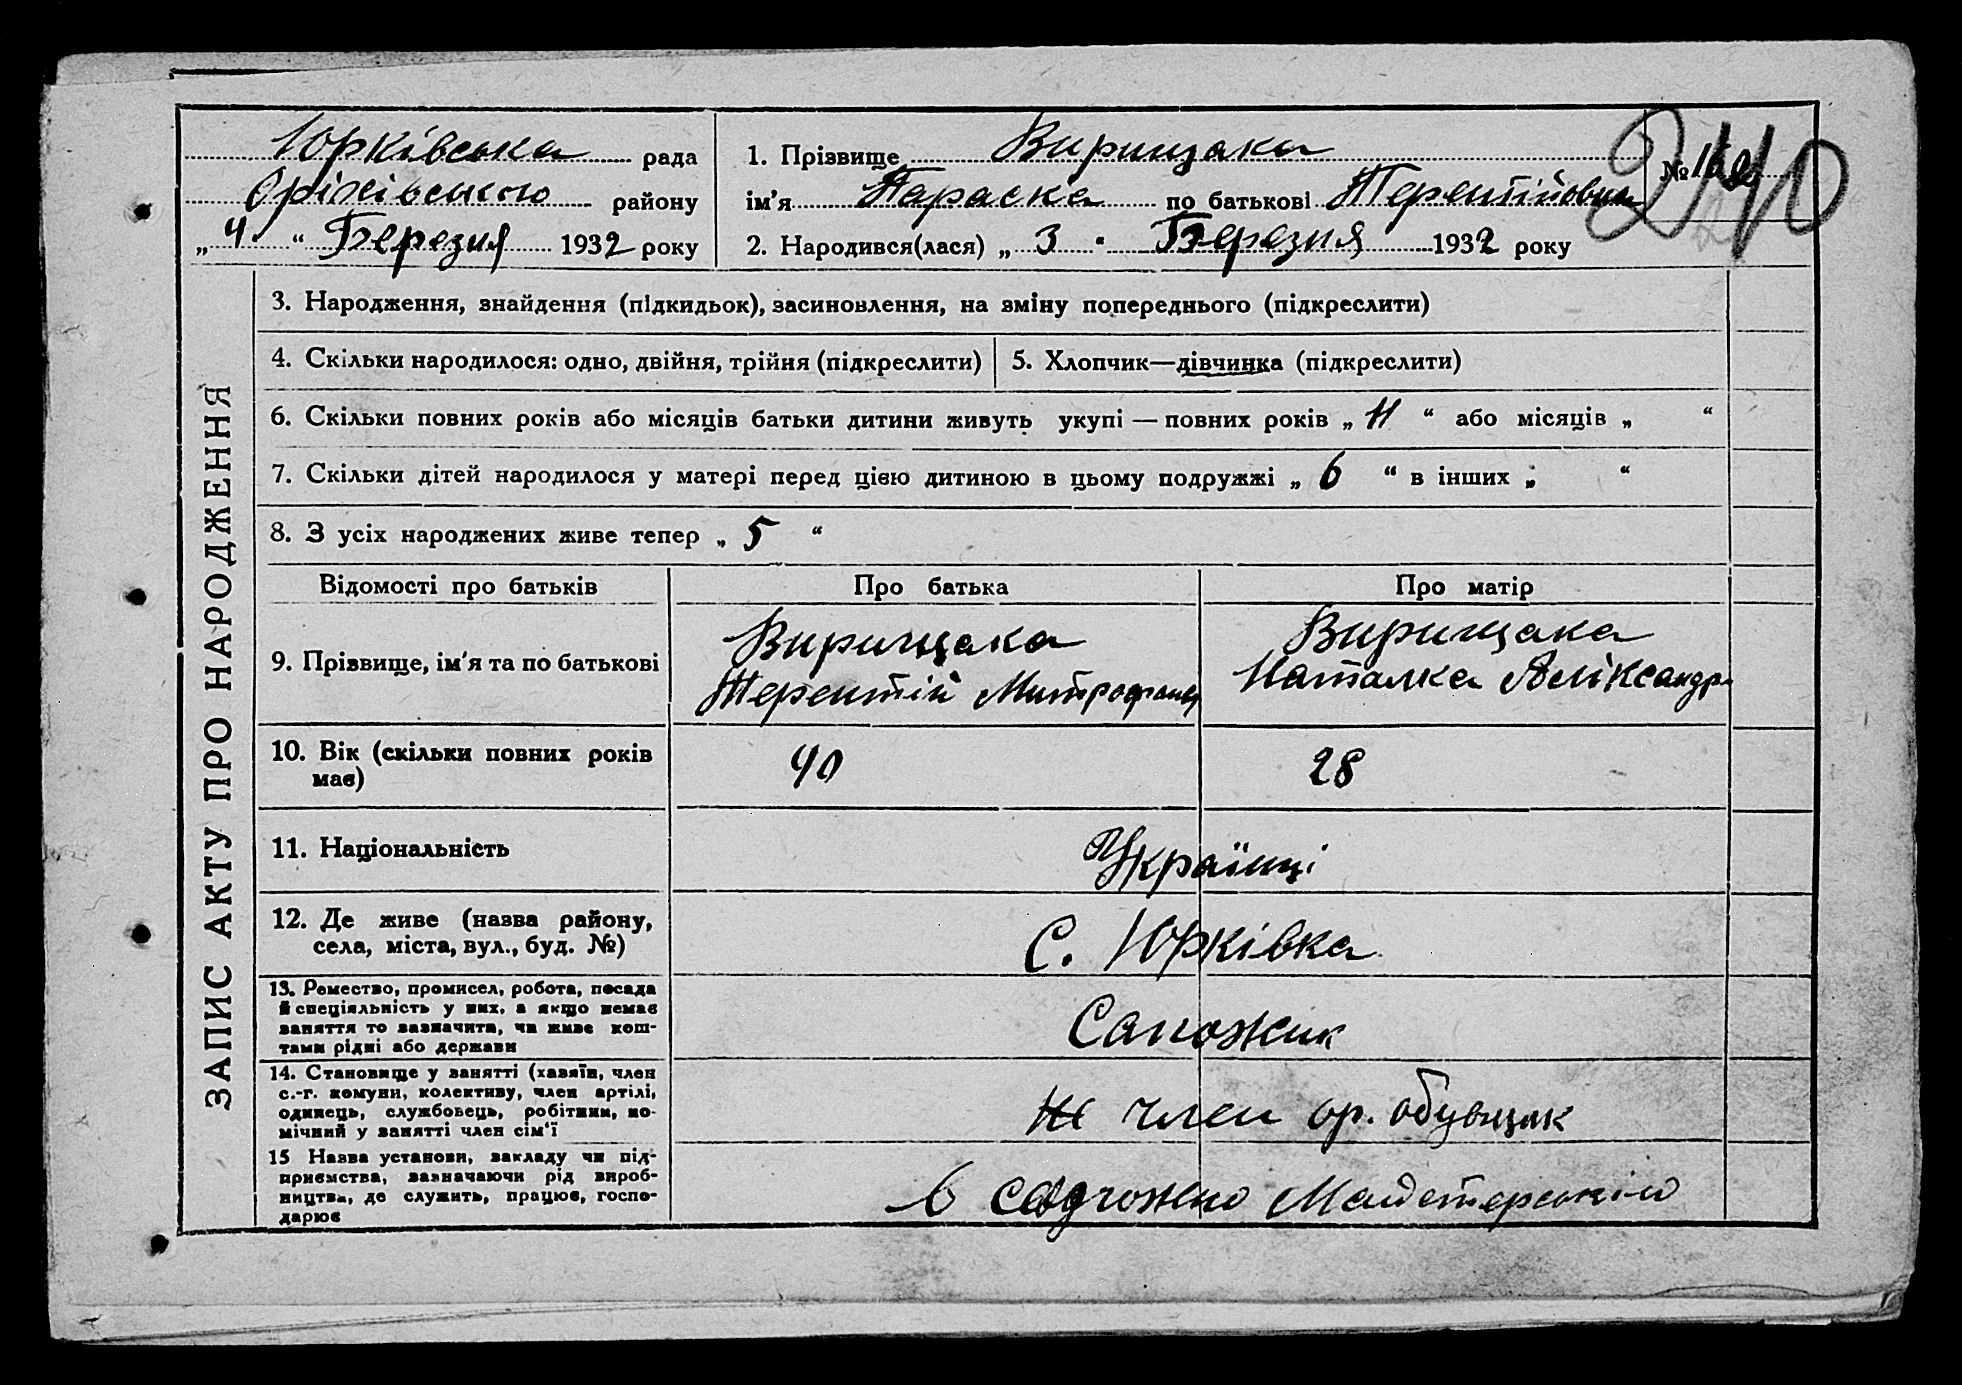 Юрківська рада
Оріхівського району
„ 4 “ Березня 1932 року
1. Прізвище Вирищака
ім'я Параска по батькові Терентійовна
2. Народився(лася) „ 3 “ Березня 1932 року
№
240
ЗАПИС АКТУ ПРО НАРОДЖЕННЯ
3. Народження, знайдення (підкидьок), засиновлення, на зміну попереднього (підкреслити)
4. Скільки народилося: одно, двійня, трійня (підкреслити)
5. Хлопчик—дівчинка (підкреслити)
6. Скільки повних років або місяців батьки дитини живуть укупі — повних років „ 11 “ або місяців „ “
7. Скільки дітей народилося у матері перед цією дитиною в цьому подружжі „ 6 “ в інших „ “
8. З усіх народжених живе тепер „ 5 “
Відомості про батьків
Про батька
Про матір
9. Прізвище, ім'я та по батькові
Вирищака
Терентій Митрофанов
Вирищака
Наталка Аліксандр
10. Вік (скільки повних років
має)
40
28
11. Національність
Українці
12. Де живе (назва району,
села, міста, вул., буд. №)
с. Юрківка
13. Ремество, промисел, робота, посада
й спеціяльність у них, а якщо немає
заняття то зазначити, чи живе кош-
тами рідні або держави
Сапожник
14. Становище у занятті (хазяїн, член
с.-г. комуни, колективу, член артілі,
одинець, службовець, робітник, по-
мічний у занятті член сім'ї
член ор. обувщик
15 Назва установи, закладу чи під-
приємства, зазначаючи рід вироб-
ництва, де служить, працює, госпо-
дарює
в Майстерській